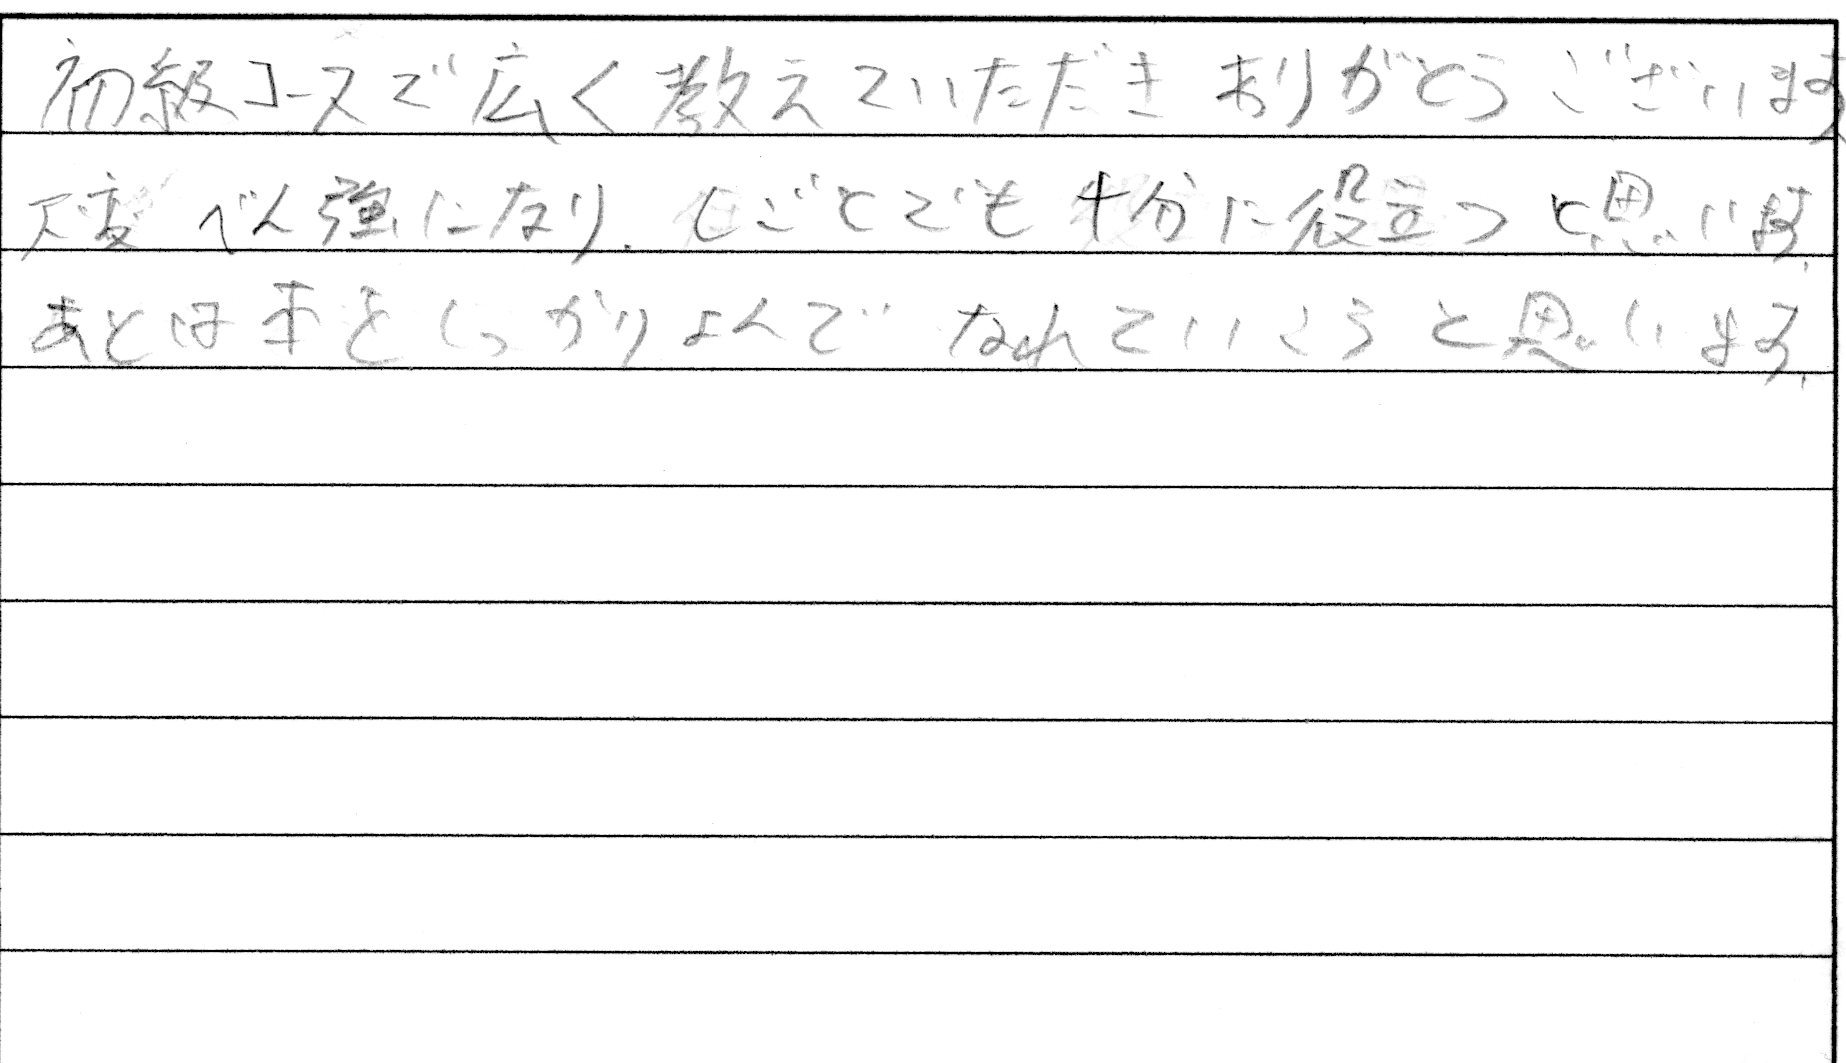 初級コースで広く教えていただきありがとうございます
大変べん強になり、しごとでも十分に役立つと思います。
あとは本をしっかりよんでなれていこうと思います。